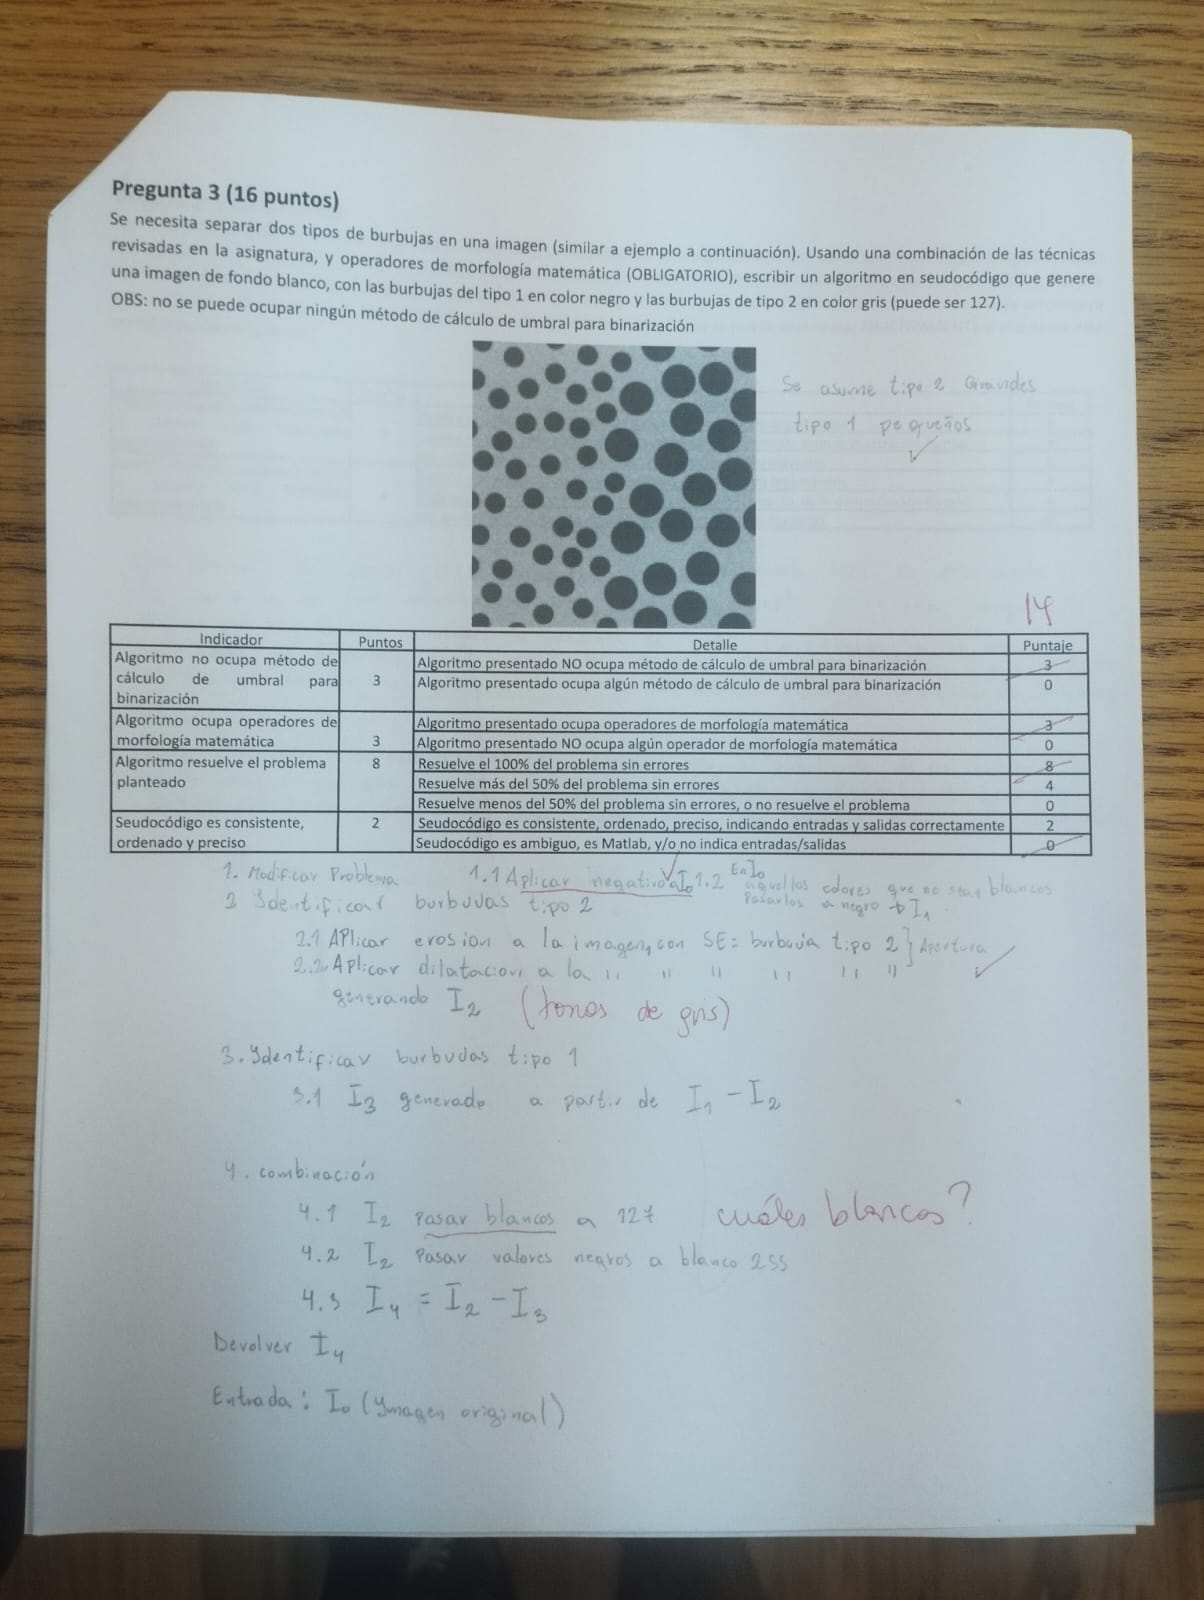 Pregunta 3 (16 puntos)
Se necesita separar dos tipos de burbujas en una imagen (similar a ejemplo a continuación). Usando una combinación de las técnicas
revisadas en la asignatura, y operadores de morfología matemática (OBLIGATORIO), escribir un algoritmo en seudocódigo que genere
una imagen de fondo blanco, con las burbujas del tipo 1 en color negro y las burbujas de tipo 2 en color gris (puede ser 127).
OBS: no se puede ocupar ningún método de cálculo de umbral para binarización
Se asume tipo 2 Grandes
tipo 1 pequeños
14
Indicador Puntos Detalle Puntaje
Algoritmo no ocupa método de cálculo de umbral para binarización 3 Algoritmo presentado NO ocupa método de cálculo de umbral para binarización 3
Algoritmo presentado ocupa algún método de cálculo de umbral para binarización 0
Algoritmo ocupa operadores de morfología matemática 3 Algoritmo presentado ocupa operadores de morfología matemática 3
Algoritmo presentado NO ocupa algún operador de morfología matemática 0
Algoritmo resuelve el problema planteado 8 Resuelve el 100% del problema sin errores 8
Resuelve más del 50% del problema sin errores 4
Resuelve menos del 50% del problema sin errores, o no resuelve el problema 0
Seudocódigo es consistente, ordenado y preciso 2 Seudocódigo es consistente, ordenado, preciso, indicando entradas y salidas correctamente 2
Seudocódigo es ambiguo, es Matlab, y/o no indica entradas/salidas 0
1. Modificar Problema 1.1 Aplicar negativo a I0 1.2 En I0 aquellos colores que no sean blancos
Pasarlos a negro → I1
2 Identificar burbujas tipo 2
2.1 Aplicar erosion a la imagen, con SE= burbuja tipo 2 } Apertura
2.2 Aplicar dilatacion a la " " " " " "
generando I2 (tonos de gris)
3. Identificar burbujas tipo 1
3.1 I3 generado a partir de I1 - I2
4. combinación
4.1 I2 Pasar blancos a 127 cuáles blancos?
4.2 I2 Pasar valores negros a blanco 255
4.3 I4 = I2 - I3
Devolver I4
Entrada: I0 (Ymagen original)